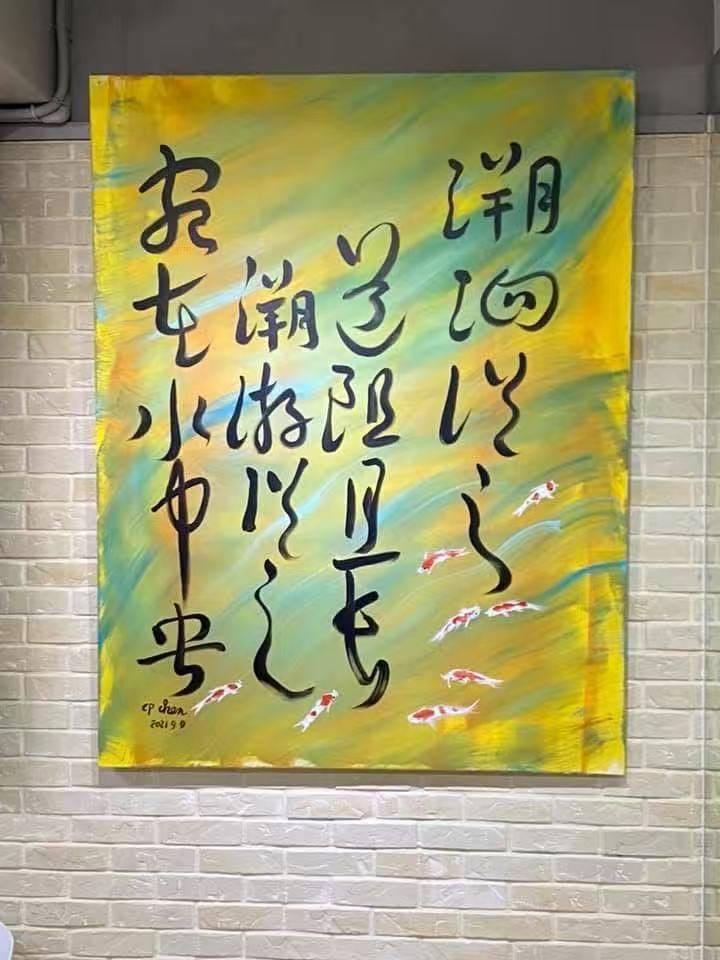 溯洄從之
道阻且長
溯游從之
宛在水中央
CP Chen
2021 9.9